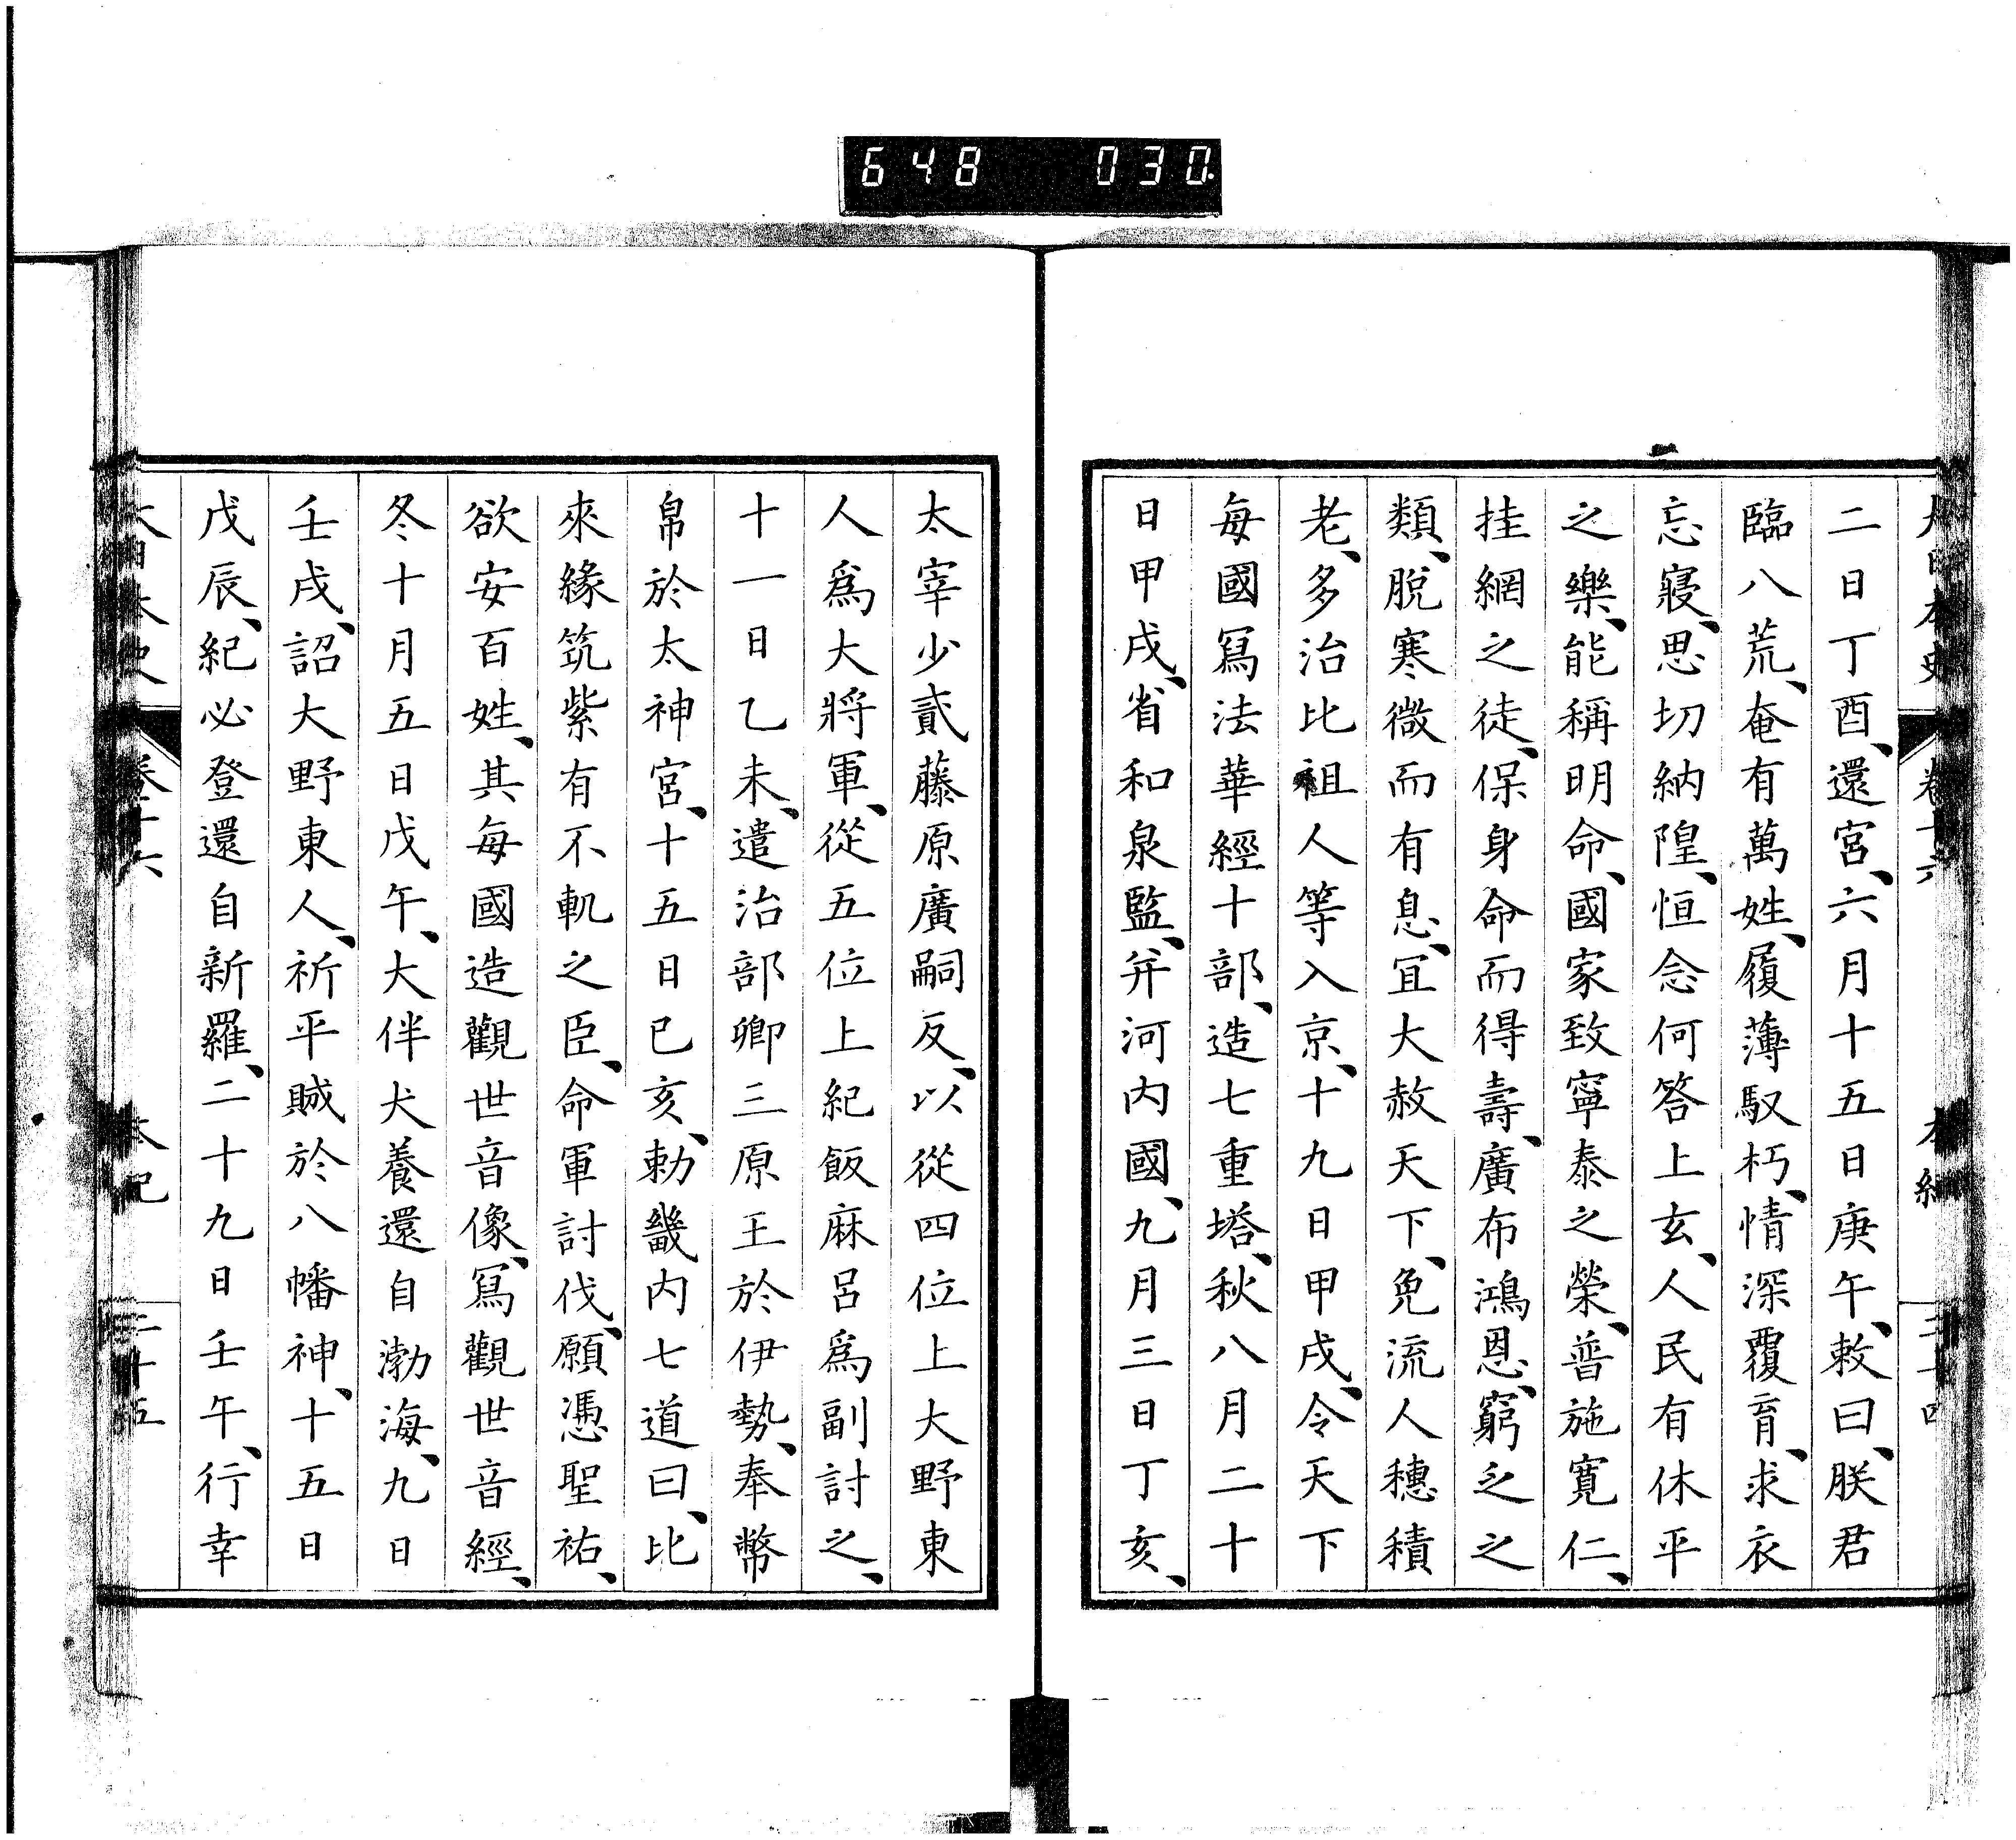 648 030
大日本史 卷十六 本紀 三十四
二日丁酉、還宮、六月十五日庚午、敕曰、朕君
臨八荒、奄有萬姓、履薄馭朽、情深覆育、求衣
忘寢、思切納隍、恒念何答上玄、人民有休平
之樂、能稱明命、國家致寧泰之榮、普施寬仁、
挂網之徒、保身命而得壽、廣布鴻恩、窮乏之
類、脫寒微而有息、宜大赦天下、免流人穗積
老、多治比祖人等入京、十九日甲戌、令天下
每國寫法華經十部、造七重塔、秋八月二十
日甲戌、省和泉監、幷河內國、九月三日丁亥、
太宰少貳藤原廣嗣反、以從四位上大野東
人爲大將軍、從五位上紀飯麻呂爲副討之、
十一日乙未、遣治部卿三原王於伊勢、奉幣
帛於太神宮、十五日己亥、勅畿内七道曰、比
來緣筑紫有不軌之臣、命軍討伐、願憑聖祐、
欲安百姓、其每國造觀世音像、寫觀世音經、
冬十月五日戊午、大伴犬養還自渤海、九日
壬戌、詔大野東人、祈平賊於八幡神、十五日
戊辰、紀必登還自新羅、二十九日壬午、行幸
大日本史 卷十六 本紀 三十五